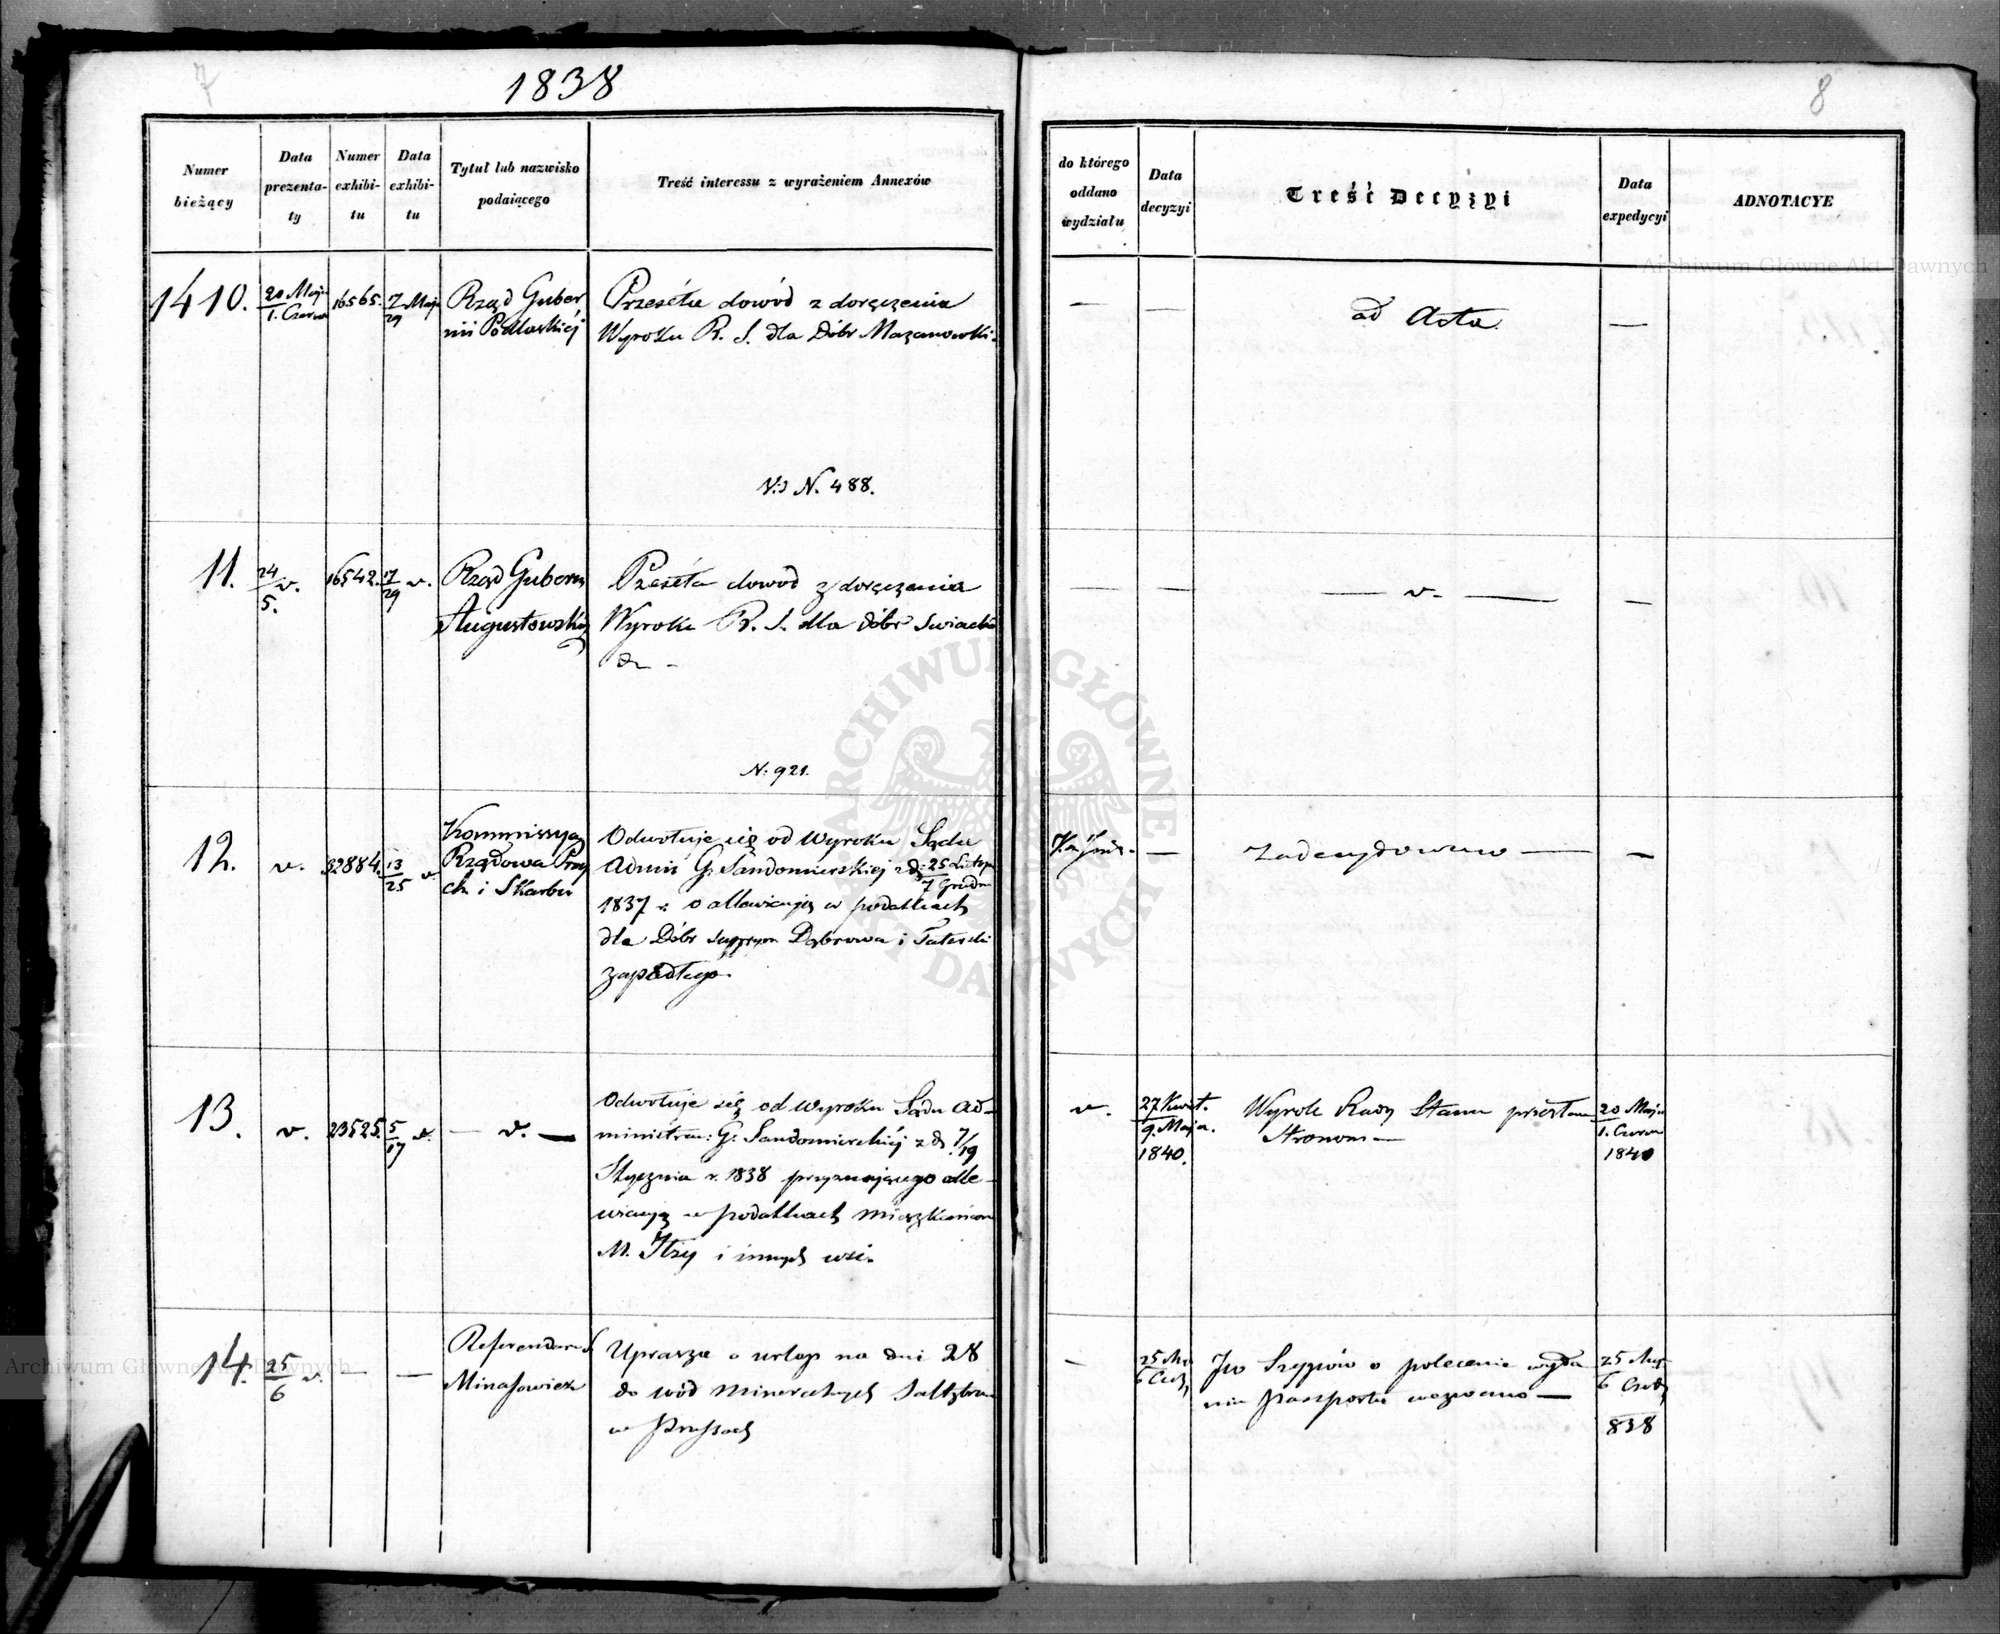 7
1838
8
Numer bieżący
Data prezenta-ty
Numer exhibi-tu
Data exhibi-tu
Tytuł lub nazwisko podaiącego
Treść interessu z wyrażeniem Annexów
do którego oddano wydziału
Data decyzyi
Treść Decyzyi
Data expedycyi
ADNOTACYE
1410.
20 Maja
1. Czerw
16565.
7 Maja
29
Rząd Guber
nii Podlaskiéj
Przeséła dowód z doręczenia
Wyroku R. S. dla Dóbr Mazanowki.
N. 488.
—
—
ad Acta.
—
11.
24 v.
5.
16542.
17 v.
29
Rząd Gubern
Augustowskiéj
Przeséła dowód z doręczenia
Wyroku R. S. dla dóbr
N. 921.
—
—
— v. —
—
12.
v.
32884.
13 v
25
Kommissya
Rządowa Przy
ch i Skarbu
Odwołuje się od Wyroku Sądu
Admin G. Sandomierskiej z d. 25 Listop
7 Grudn
1837 r. o allewiacyję w podatkach
dla Dóbr Dąbrowa i
zapadłego.
—
Zadecydowano —
—
13.
v.
23525.
5 v.
17
— v. —
Odwołuje się od Wyroku Sądu Ad-
ministrac: G. Sandomierskiéj z d. 7/19
Stycznia r. 1838 przyznającego alle-
wiacyją w podatkach Mieszkańcom
M. Iłży i innych wsi.
v.
27 Kwiet.
9. Maja.
1840.
Wyrok Rady Stanu przesłano
Stronom —
20 Maja
1. Czerw
1840
14.
25 v.
6
—
—
Referendarz S.
Minasowicz
Uprasza o urlop na dni 28
do wód Mineralnych Saltzbrun
w Prussach
—
25 Ma
6 Cz
JW Szypów o polecenie wyda
nia paszportu wezwano —
25 Ma
6 Cz
838
Archiwum Główne Akt Dawnych
ARCHIWUM GŁÓWNE AKT DAWNYCH
Archiwum Główne Akt Dawnych